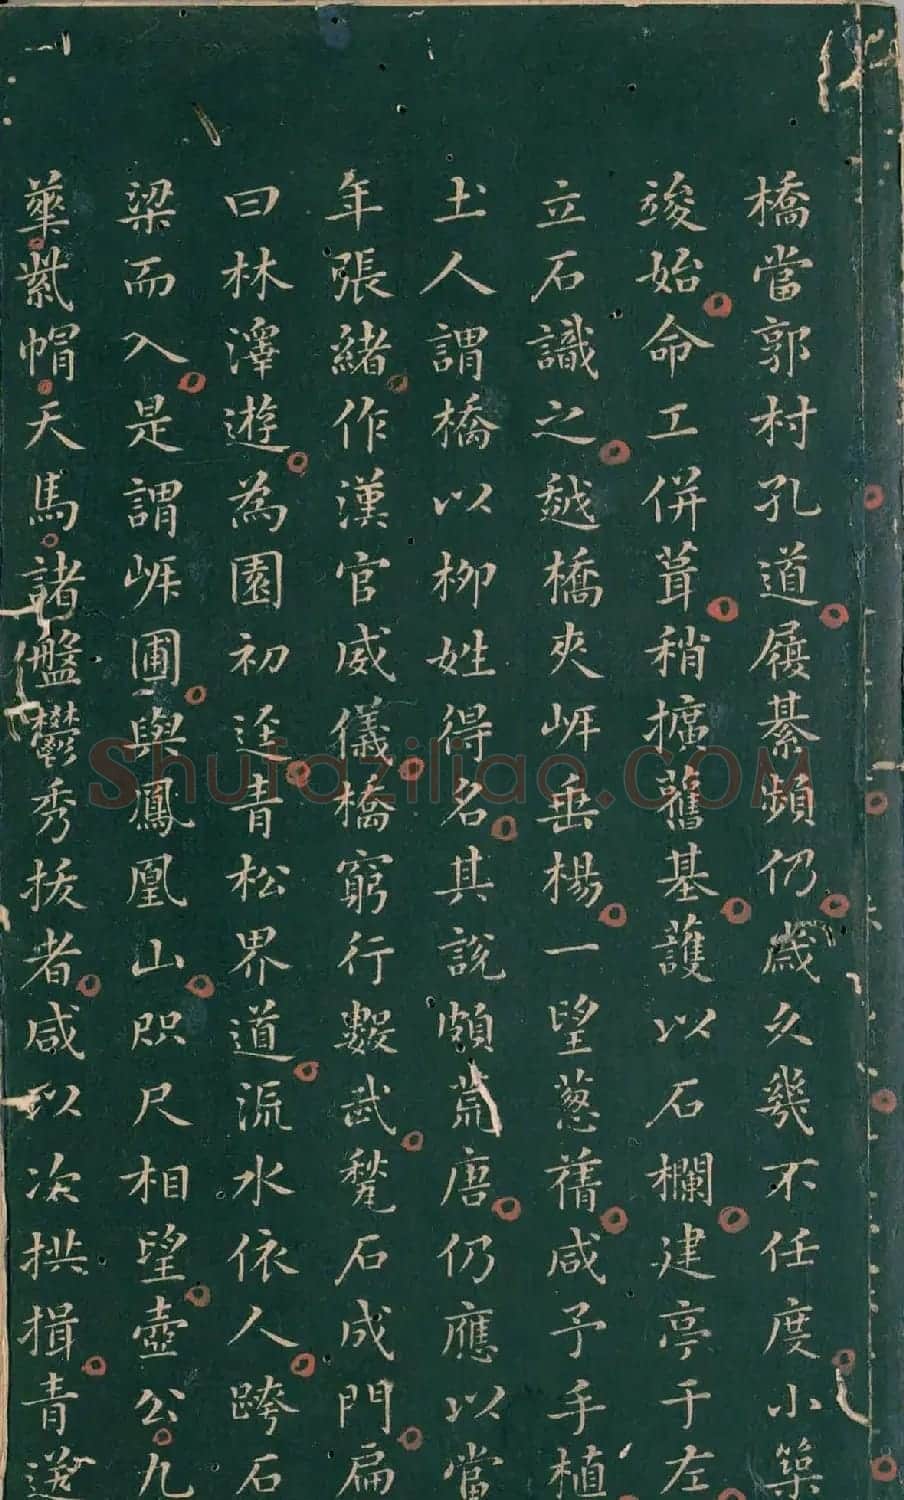 橋當郭村孔道履綦頻仍歲久幾不任度小築
竣始命工併葺稍擴舊基護以石欄建亭于左
立石識之越橋夾岈垂楊一望蔥蒨咸予手植
土人謂橋以柳姓得名其說頗荒唐仍應以當
年張緒作漢官威儀橋窮行數武甃石成門扁
曰林澤遊為園初逕青松界道流水依人跨石
梁而入是謂岈圃與鳳凰山咫尺相望壺公九
華紫帽天馬諸盤鬱秀拔者咸以次拱揖青送
Shufaziliao.COM